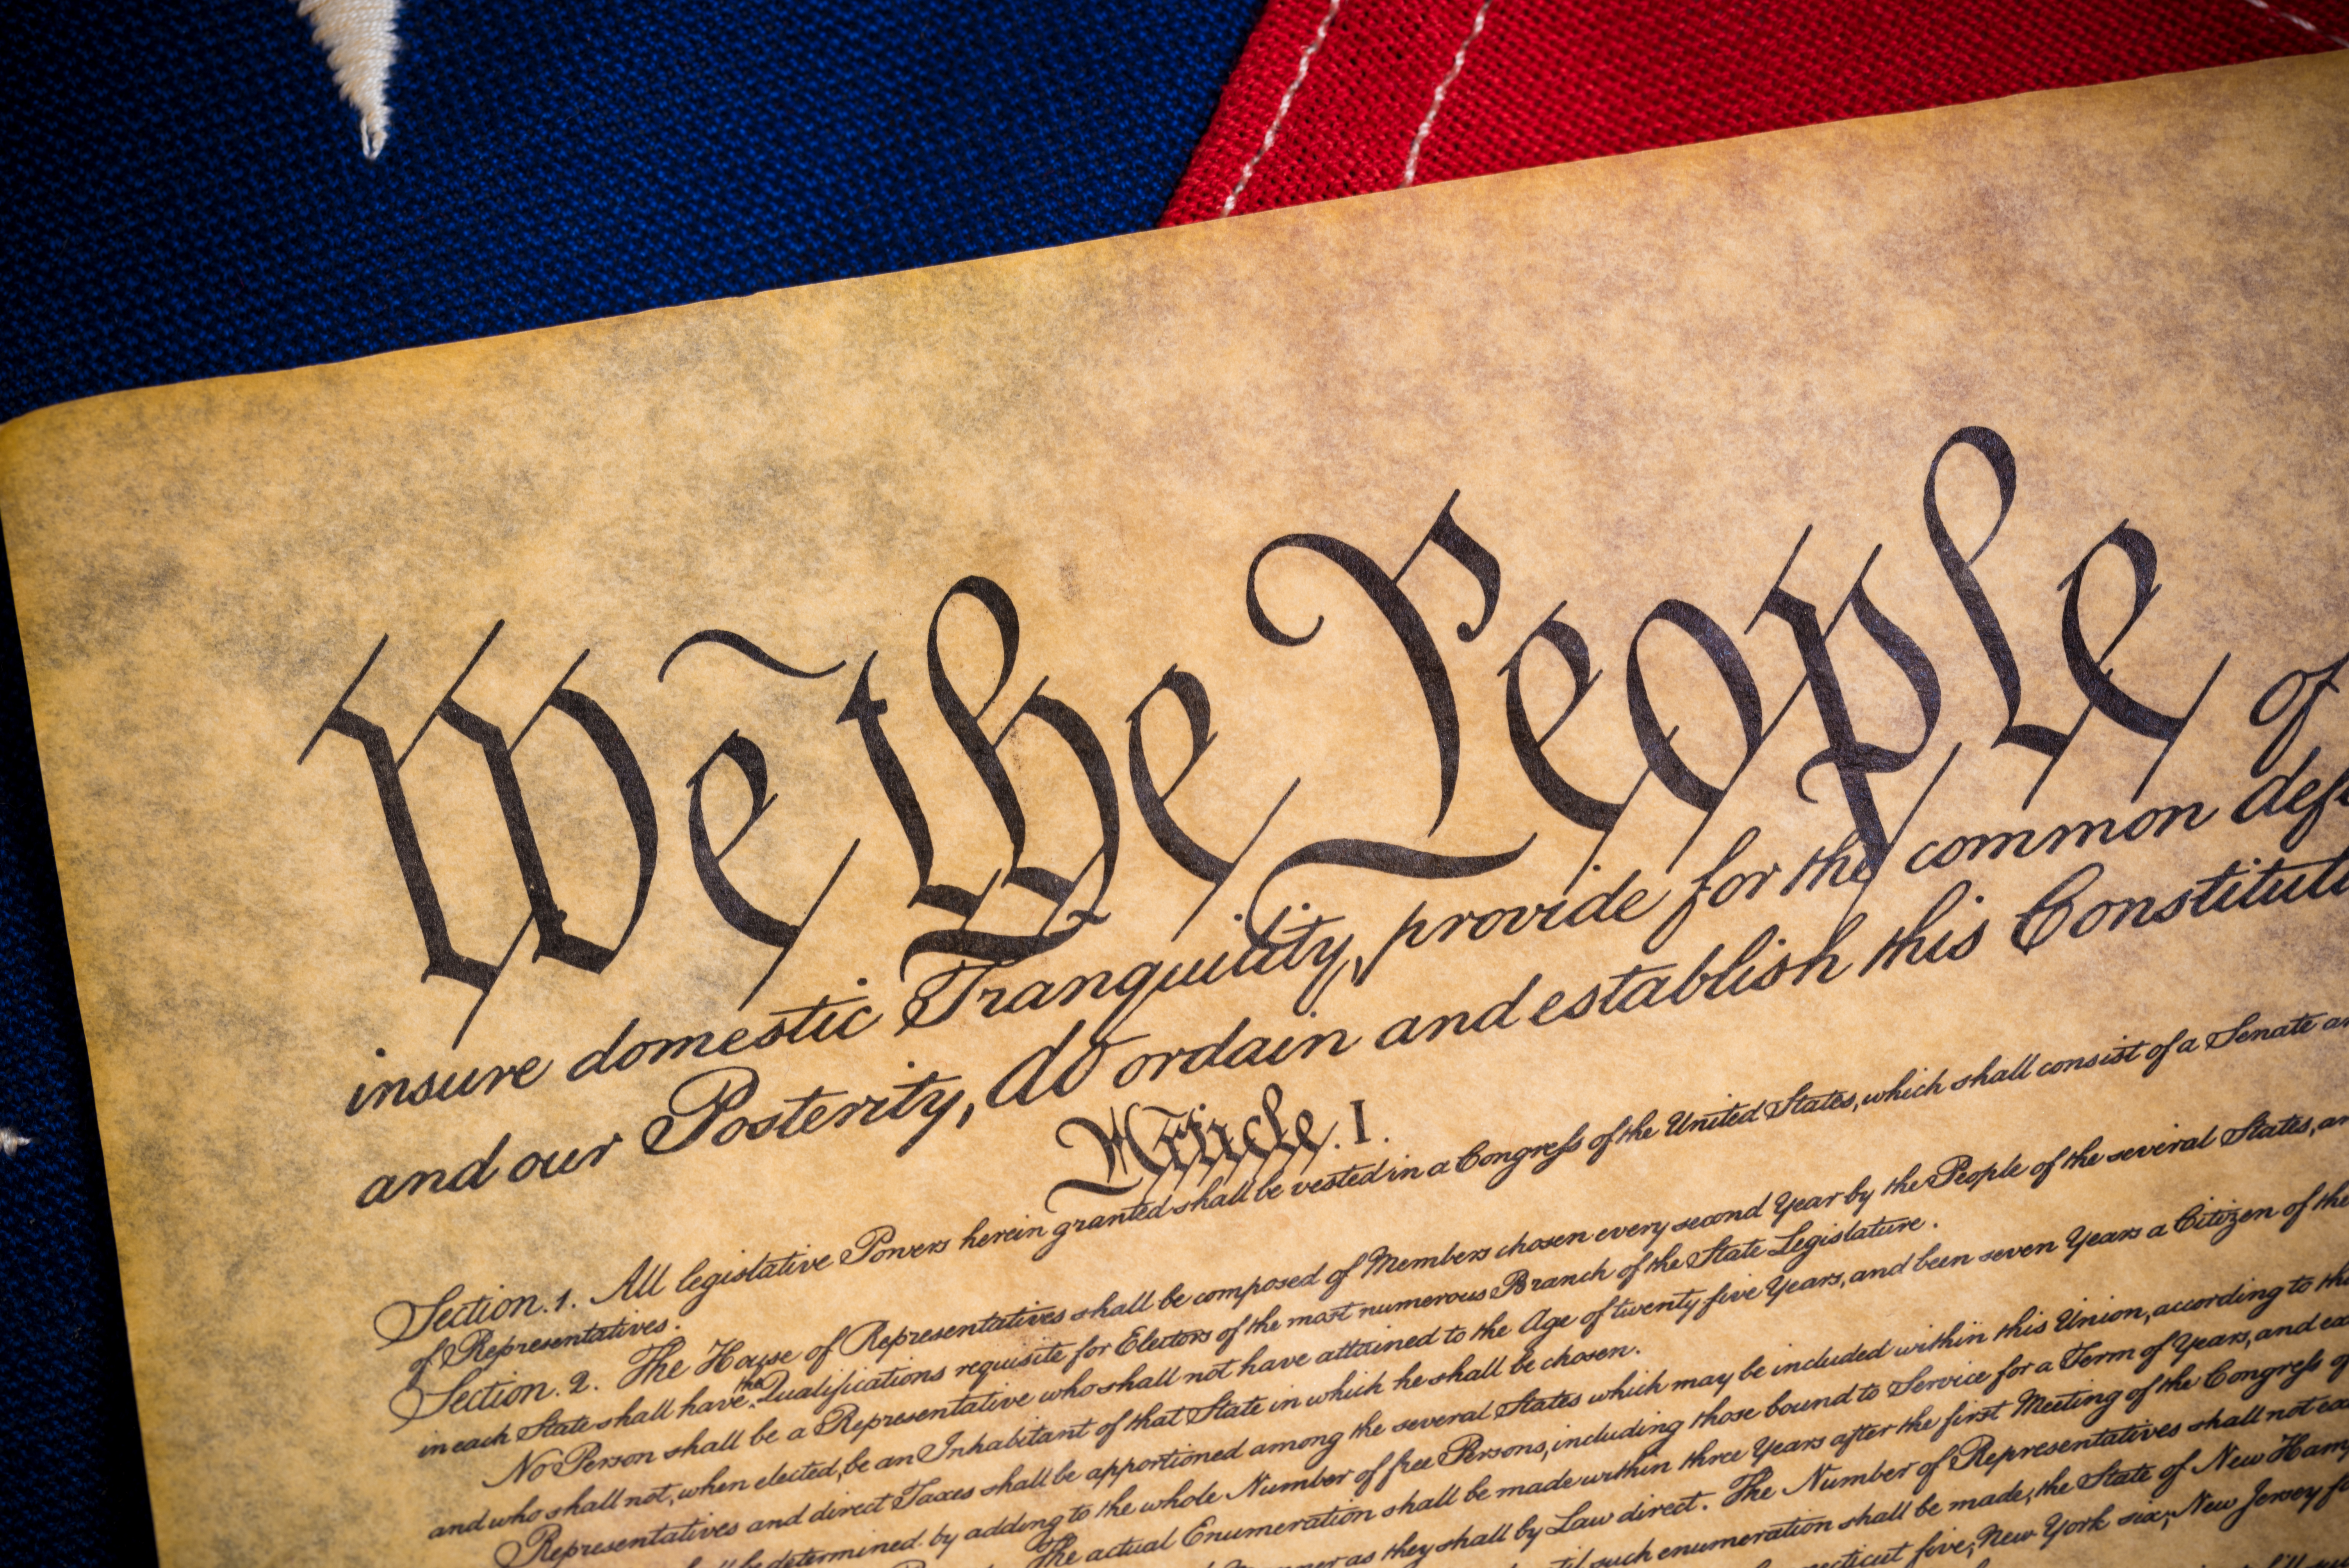 We the People of
insure domestic Tranquility, provide for the common def
and our Posterity, do ordain and establish this Constituti
Article. I.
Section. 1. All legislative Powers herein granted shall be vested in a Congress of the United States, which shall consist of a Senate an
of Representatives.
Section. 2. The House of Representatives shall be composed of Members chosen every second Year by the People of the several States, an
in each State shall have the Qualifications requisite for Electors of the most numerous Branch of the State Legislature.
No Person shall be a Representative who shall not have attained to the Age of twenty five Years, and been seven Years a Citizen of the
and who shall not, when elected, be an Inhabitant of that State in which he shall be chosen.
Representatives and direct Taxes shall be apportioned among the several States which may be included within this Union, according to the
be determined by adding to the whole Number of free Persons, including those bound to Service for a Term of Years, and
The actual Enumeration shall be made within three Years after the first Meeting of the Congress
as they shall by Law direct. The Number of Representatives shall not
such enumeration shall be made, the State of New Ham
five, New York six, New Jersey